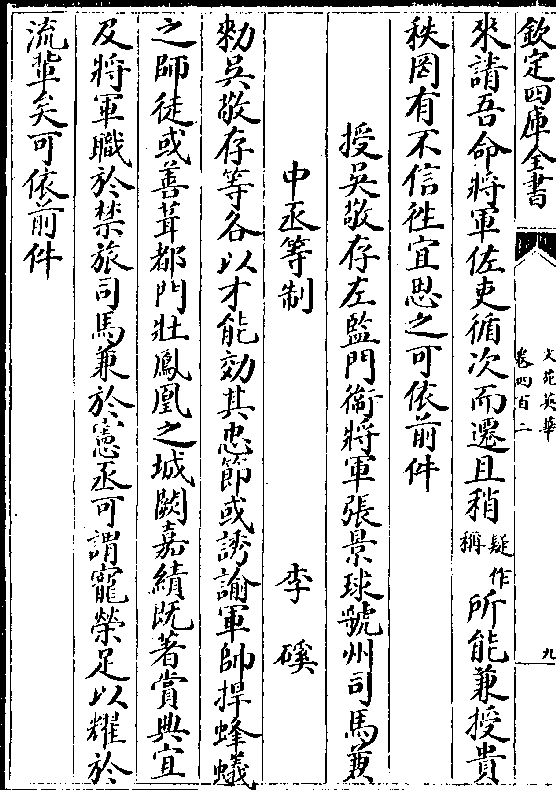 欽定四庫全書
文苑英華
卷四百二
九
來請吾命將軍佐吏循次而遷且稍疑作稱所能兼授貴
秩罔有不信徃宜思之可依前件
授吳敬存左監門衞將軍張景球虢州司馬兼
中丞等制
李磎
勑吳敬存等各以才能効其忠節或誘諭軍帥捍蜂蟻
之師徒或善葺都門壯鳳凰之城闕嘉績既著賞典宜
及將軍職於禁旅司馬兼於憲丞可謂寵榮足以耀於
流輩矣可依前件